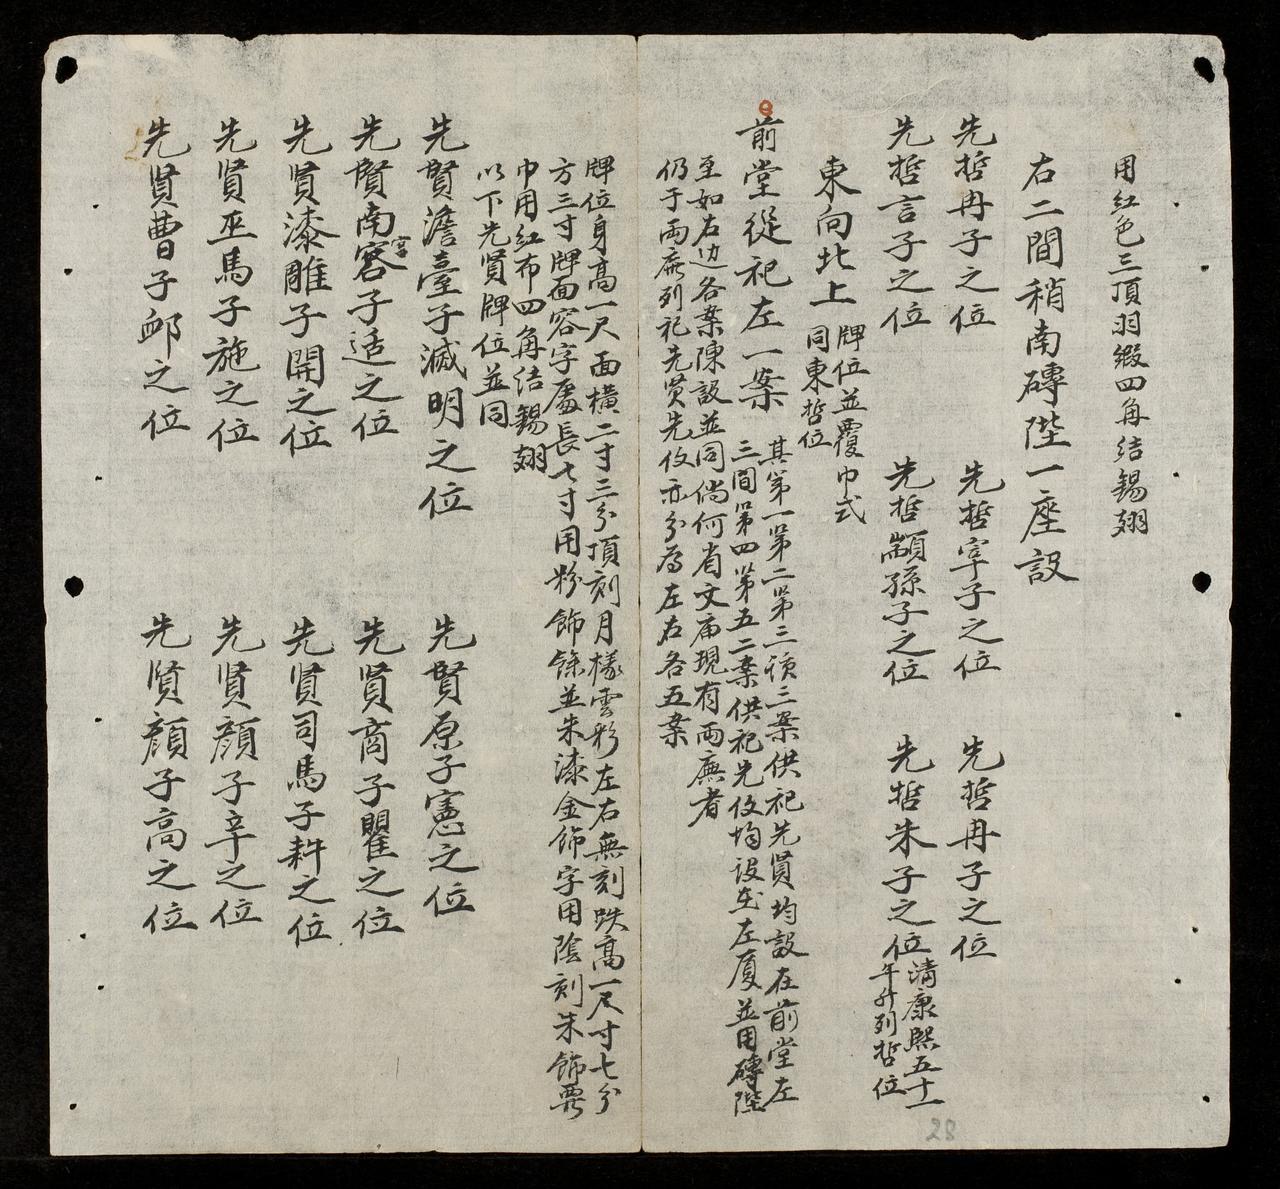 用紅色三頂羽緞四角結錫翅
右二間稍南磚陛一座設
先哲冉子之位 先哲宰子之位 先哲冉子之位
先哲言子之位 先哲顓孫子之位 先哲朱子之位 清康熙五十一
年升列哲位
東向北上 牌位並覆巾式
同東哲位
前堂從祀左一案 其第一第二第三該三案供祀先賢均設在前堂左
三間第四第五二案供祀先伩均设在左厦並用磚陛
至如右边各案陳設並同倘何省文庙現有両廡者
仍于両廡列祀先贤先伩亦分為左右各五案
牌位身高一尺面横二寸三分頂刻月樣雲彩左右無刻趺高一尺寸七分
方三寸牌面容字處長七寸用粉飾餘並朱漆金飾字用陰刻朱飾覆
巾用紅布四角结錫翅
以下先賢牌位並同
先賢澹臺子滅明之位 先賢原子憲之位
先賢南容宮子适之位 先賢商子瞿之位
先賢漆雕子開之位 先賢司馬子耕之位
先賢巫馬子施之位 先賢顏子辛之位
先賢曹子卹之位 先賢顏子高之位
28